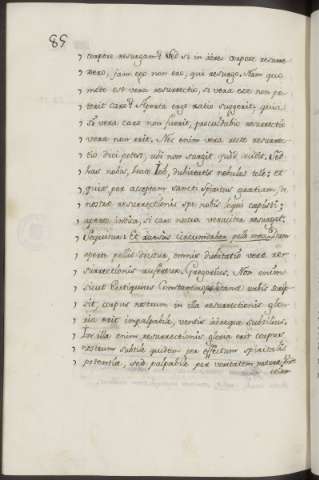 85
, corpore resurgam? Sed si in aëreo corpore resurre
, xero, jam ego non ero, qui resurgo. Nam quo
, modo est vera resurrectio, si vera esse non po
, terit caro? Aperta ergo ratio suggerit, quia
, si vera caro non fuerit, proculdubio resurrectio
, vera non erit. Nec enim vera esse resurre
, ctio dici potest, ubi non surgit quod cecidit. Sed
, has nobis, beate Job, dubietatis nebulas tolle; et
, quia per acceptam sancti Spiritus gratiam, de
, nostræ resurrectionis spe nobis loqui cæpisti;
, aperte indica, si caro nostra veraciter resurget.
, Sequitur: Et rursus circumdabor pelle mea: Dum
, aperte pellis dicitur, omnis dubitatio veræ re-
, surrectionis aufertur. Gregorius. Non enim
, sicut Eutiquius Constantinopolitanæ urbis scrip
, sit, corpus nostrum in illa resurrectionis glo-
, ria erit impalpabile, ventis aëreque subtilius.
, In illa enim resurrectionis gloria erit corpus
, nostrum subtile quidem per effectum spiritalis
, potentiæ, sed palpabile per veritatem naturæ.